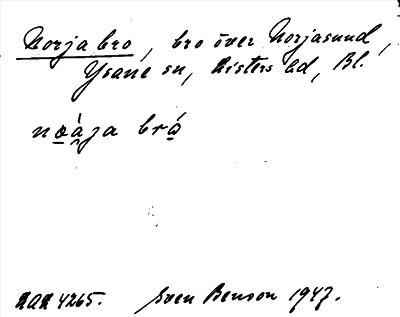 Norja bro, bro över Norjasund,
Ysane sn, Listers hd, Bl.
bró
4265. Sven Benson 1947.